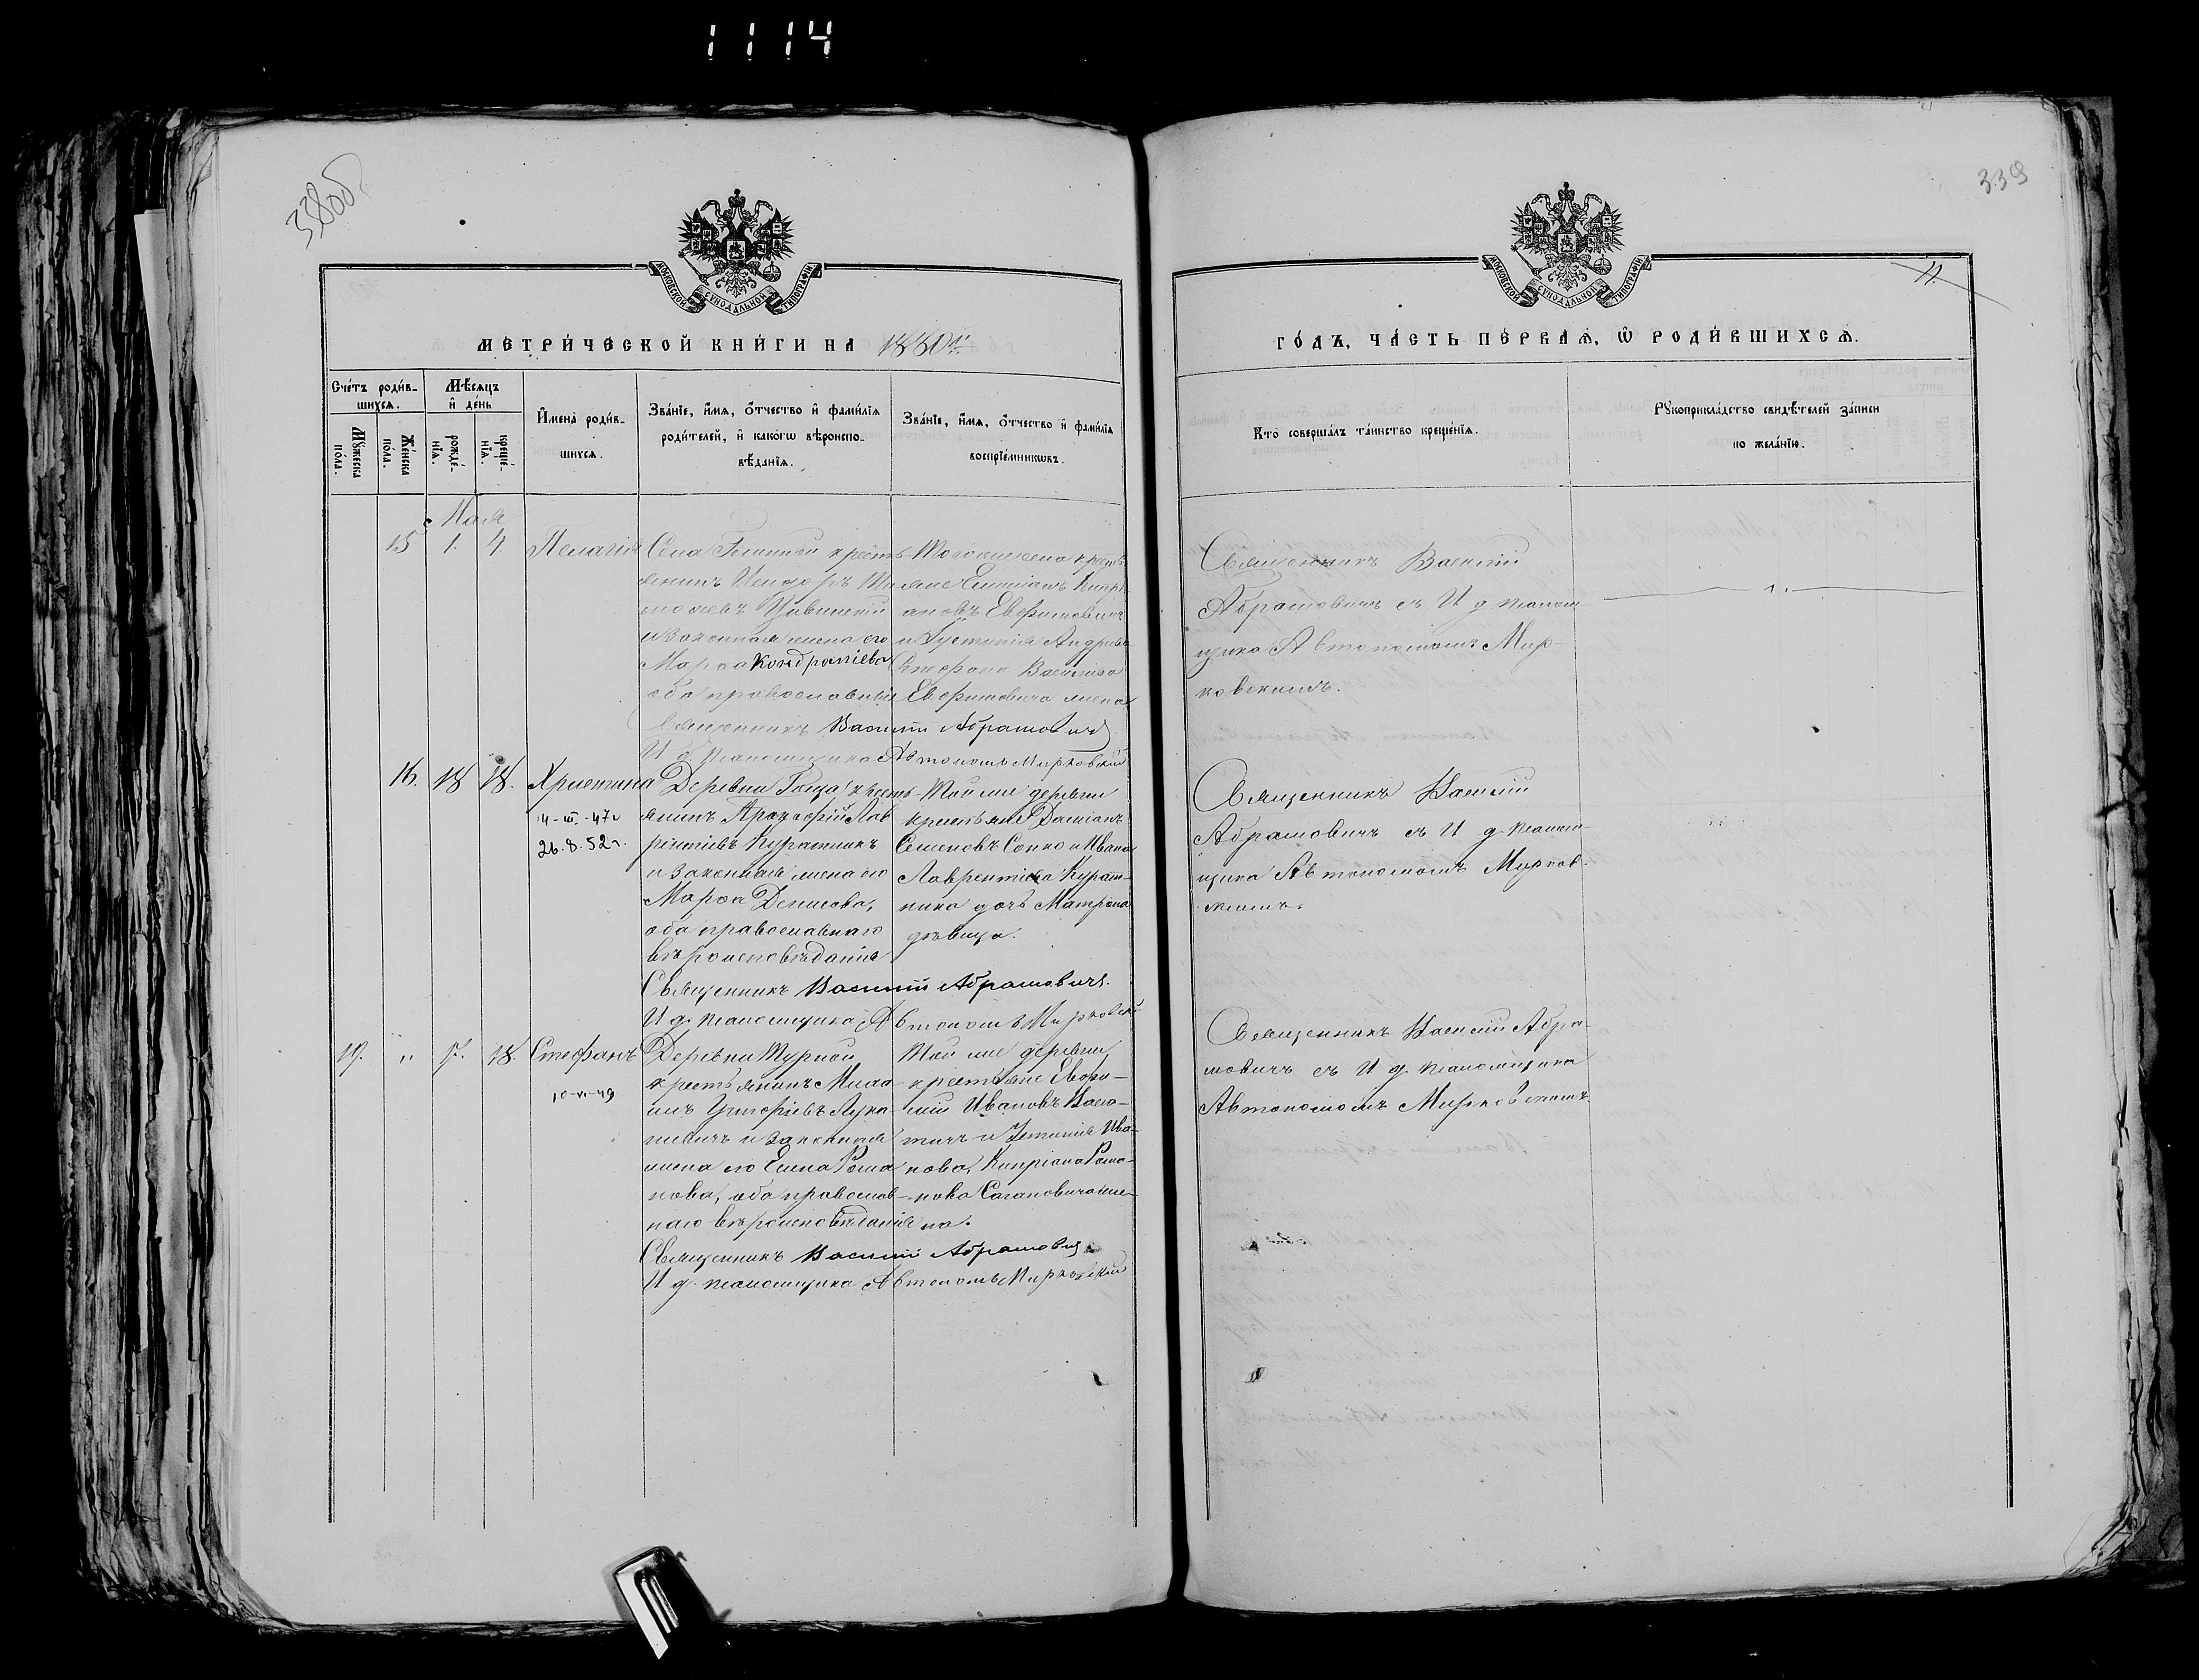 1114
338об
339
11.
МОСКОВСКОЙ СѴНОДАЛЬНОЙ ТИПОГРАФІИ
МОСКОВСКОЙ СѴНОДАЛЬНОЙ ТИПОГРАФІИ
МЕТРИ́ЧЕСКОЙ КНИ́ГИ НА 1880й
ГО́ДЪ, ЧА́СТЬ ПЕ́РВАѦ, Ѿ РОДИ́ВШИХСѦ.
Сче́тъ роди́в-
шихсѧ.
Мѹ́жеска по́ла.
Же́нска по́ла.
Мѣ́сѧцъ
и҆ де́нь
рожде́-
нїѧ.
креще́-
нїѧ.
И҆мена̀ роди́в-
шихсѧ.
Зва́нїе, и҆́мѧ, ѻ҆́тчество и҆ фамѝлїѧ
роди́телей, и҆ како́гѡ вѣроиспо-
вѣ́данїѧ.
Зва́нїе, и҆́мѧ, ѻ҆́тчество и҆ фамѝлїѧ
воспрїе́мникѡвъ.
Кто̀ соверша́лъ та́инство креще́нїѧ.
Рꙋкоприкла́дство свидѣ́телей за́писи
по жела́нїю.
Мая
15 1. 4 Пелагія
Села крестъ-
янинъ
и законная жена его
Марѳа Кондратіева
оба православные
Священникъ Василій Абрамовичъ
И д. псаломщика Автономъ Мирковскій
Тогоже села крестъ-
яне
и Іустинія Андреева
Стефана Василіева
жена
Священникъ Василій
Абрамовичъ съ И д. псалом-
щика Автономомъ Мир-
ковскимъ.
16. 18 18. Христина
14-III-47г
26.8.52г.
Деревни крестъ-
янинъ Прокофій Лав
рентіевъ Куратникъ
и законная жена его
Марѳа Денисова,
оба православнаго
вѣроисповѣданія
Священникъ Василій Абрамовичъ.
И д. псаломщика Автономъ Мирковскій
Той же деревни
крестьяне Даміанъ
Семеновъ Сопко и Ивана
Лаврентіева Курат-
ника дочь Матрона
дѣвица.
Священникъ Василій
Абрамовичъ съ И д. псалом-
щика Автономомъ Мирков-
скимъ.
19. " 17. 18. Стефанъ
10-VI-49
Деревни Турной
крестьянинъ Миха-
илъ Григоріевъ Лука-
шевичъ и законная
жена его Елена Рома
нова, оба православ-
наго вѣроисповѣданія
Священникъ Василій Абрамовичъ
И д. псаломщика Автономъ Мирковскій
Той же деревни
крестьяне Евѳи-
мій Ивановъ
и Устинія Ива-
нова, Кипріана Рома-
нова Сагановича же-
на.
Священникъ Василій Абра-
мовичъ съ И д. псаломщика
Автономомъ Мирковскимъ.